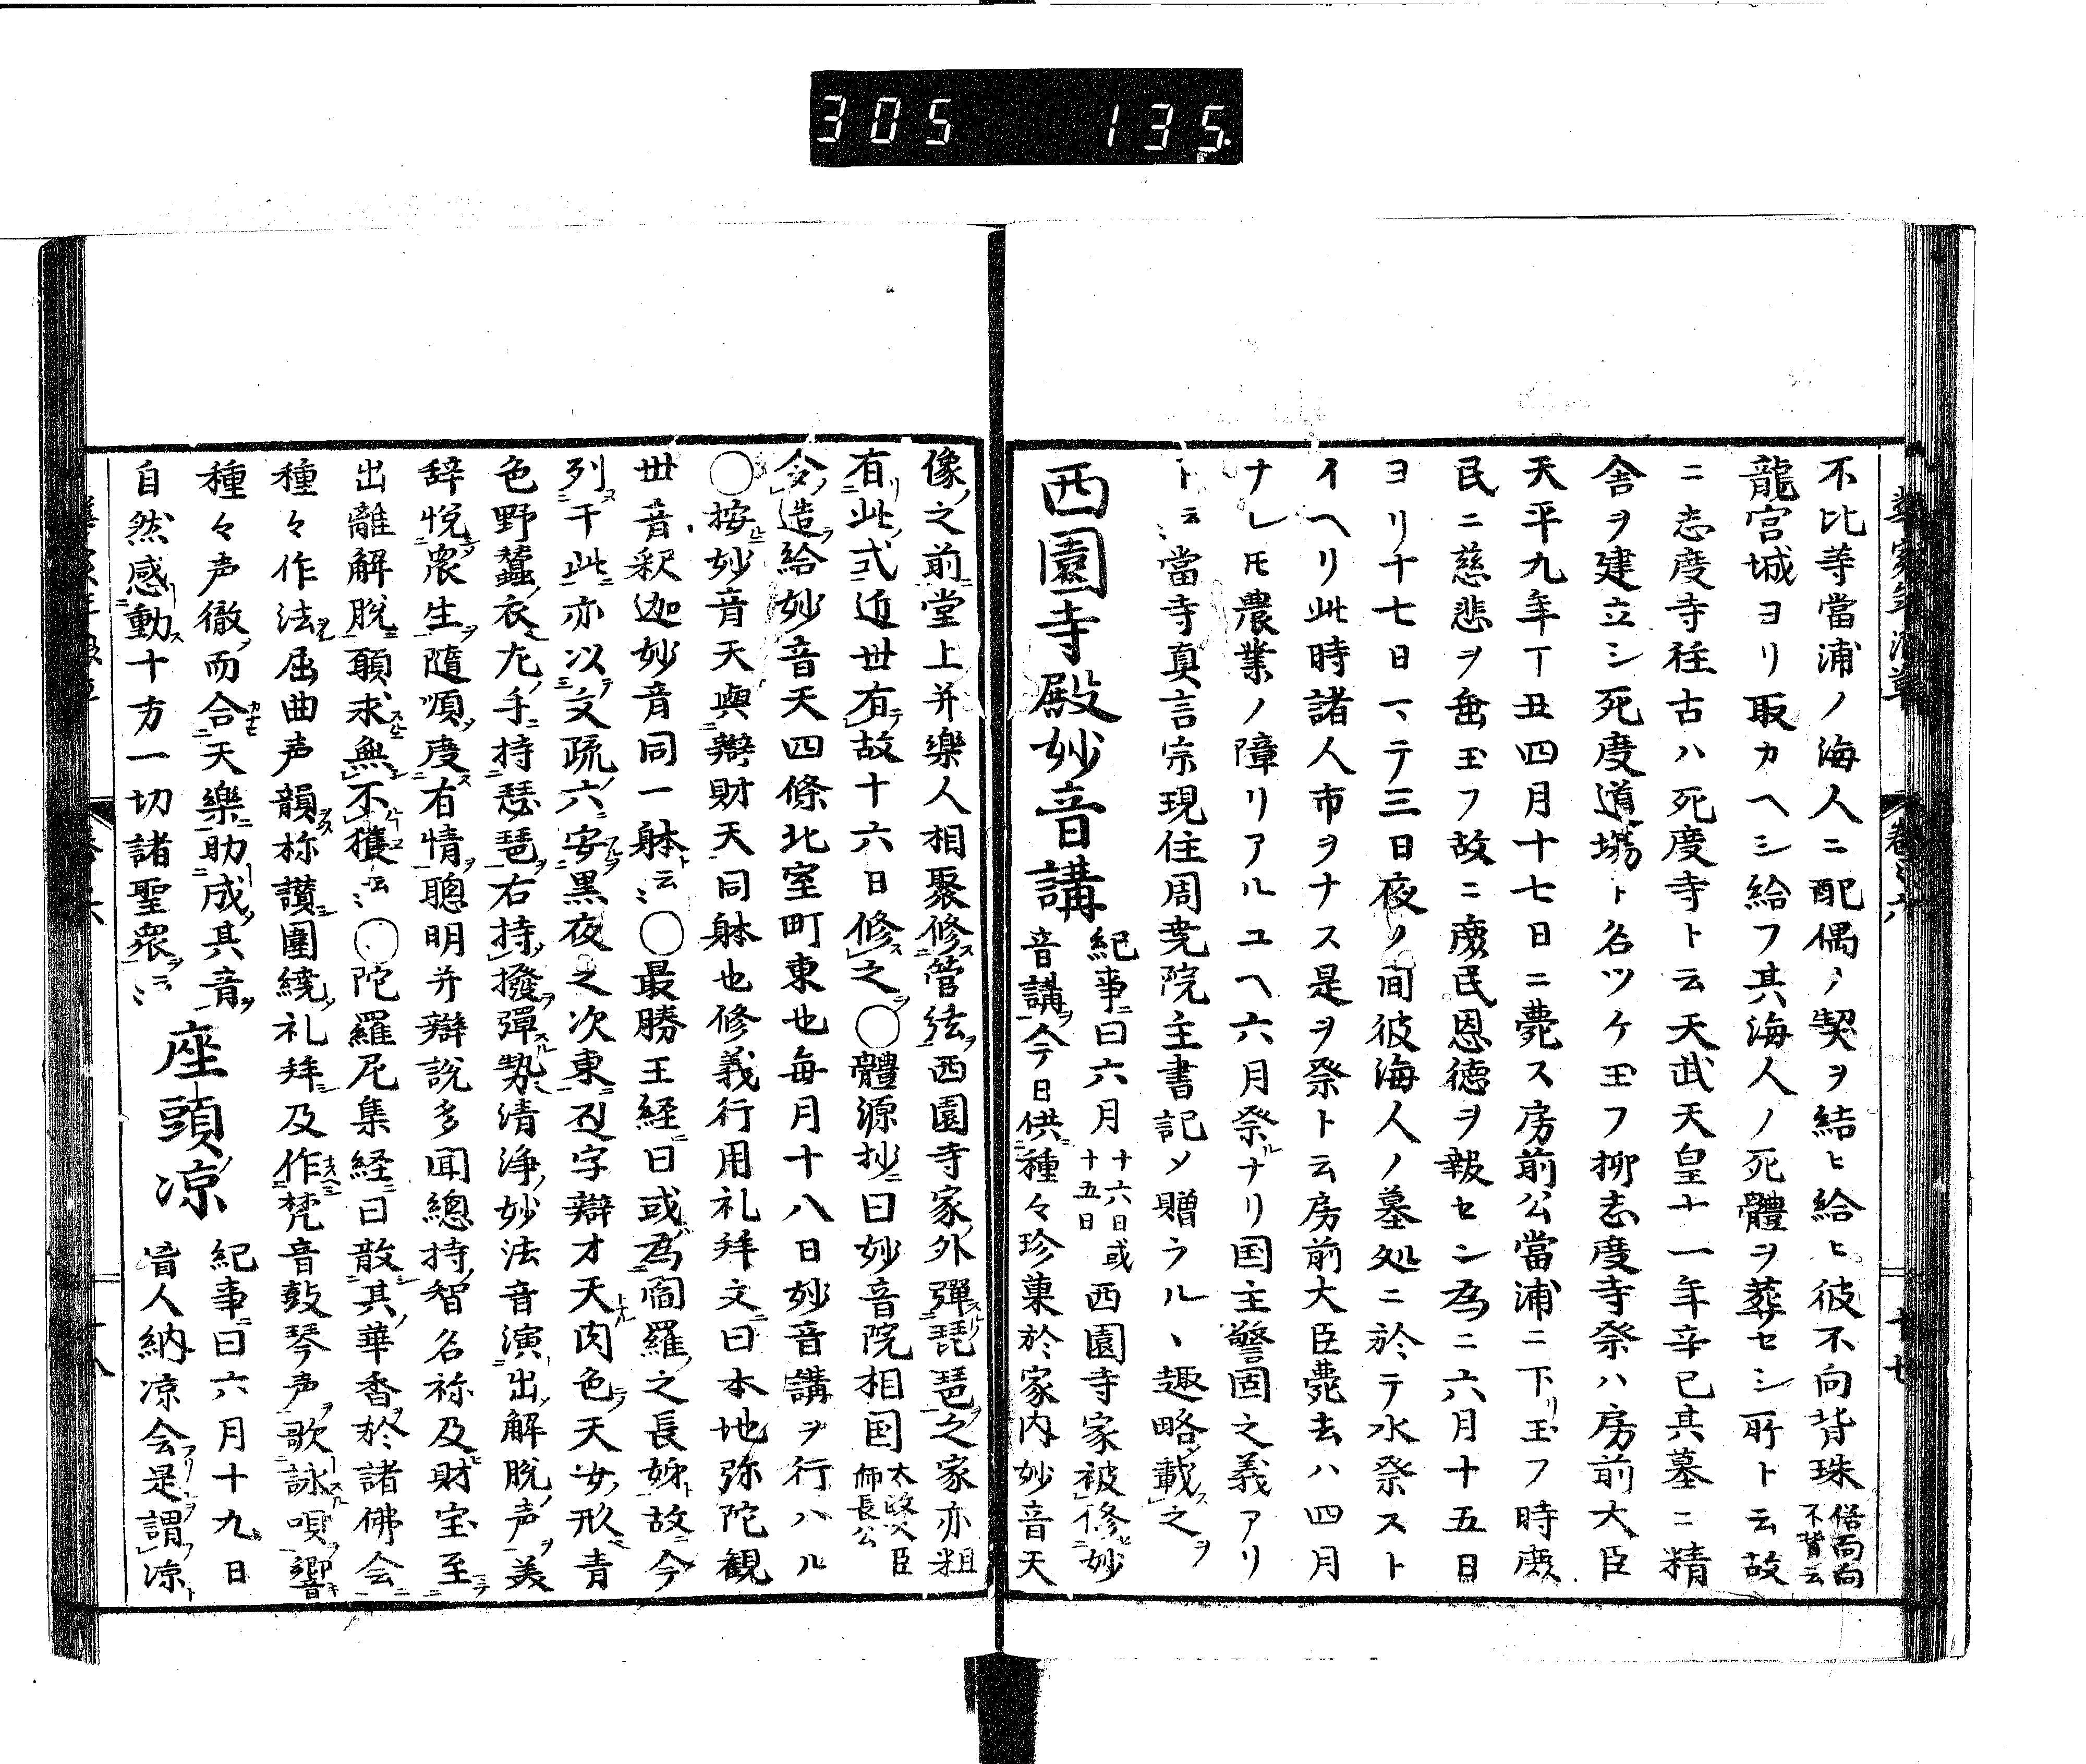 305 135
不比等當浦ノ海人ニ配偶ノ契ヲ結ヒ給ヒ彼不向背珠
龍宮城ヨリ取カヘシ給フ其海人ノ死體ヲ葬セシ所ト云故
ニ志度寺往古ハ死度寺ト云天武天皇十一年辛巳其墓ニ精
舎ヲ建立シ死度道塲ト名ツケ玉フ抑志度寺祭ハ房前大臣
天平九年丁丑四月十七日ニ薨ス房前公當浦ニ下リ玉フ時庶
民ニ慈悲ヲ垂玉フ故ニ庶民恩徳ヲ報セン為ニ六月十五日
ヨリ十七日ヽテ三日夜ノ間彼海人ノ墓処ニ於テ水祭スト
イヘリ此時諸人市ヲナス是ヲ祭ト云房前大臣薨去ハ四月
ナレ𪜈農業ノ障リアルユヘ六月祭ルナリ国主警固之義アリ
ト云〻當寺真言宗現住周堯院主書記メ贈ラルヽ趣略載之
西園寺殿妙音講
紀事曰六月十六日或十五日西園寺家被修妙
音講今日供種々珍菓於家内妙音天
像之前堂上并樂人相聚修管弦西園寺家外彈琵琶之家亦粗
有此式近世有故十六日修之〇體源抄曰妙音院相国太政大臣師長公
令造給妙音天四條北室町東也毎月十八日妙音講ヲ行ハル
〇按妙音天與辯財天同躰也修義行用礼拜文曰本地弥陀観
世音釈迦妙音同一躰云〻〇最勝王経曰或為閻羅之長姉故今
列于此亦以文疏六安黒夜之次東辺字辯才天肉色天女形青
色野蠶衣左手持琵琶右持撥彈勢清淨妙法音演出解脱声美
辞悦衆生隨順度有情聰明并辯説多聞總持智名称及財宝至
出離解脱願求無不獲云〻〇陀羅尼集経曰散其華香於諸佛会
種々作法屈曲声韻称讃圍繞礼拜及作梵音鼓琴声歌詠唄響
種々声徹而合天樂助成其音
自然感動十方一切諸聖衆云〻
座頭凉
紀事曰六月十九日
盲人納凉会是謂凉